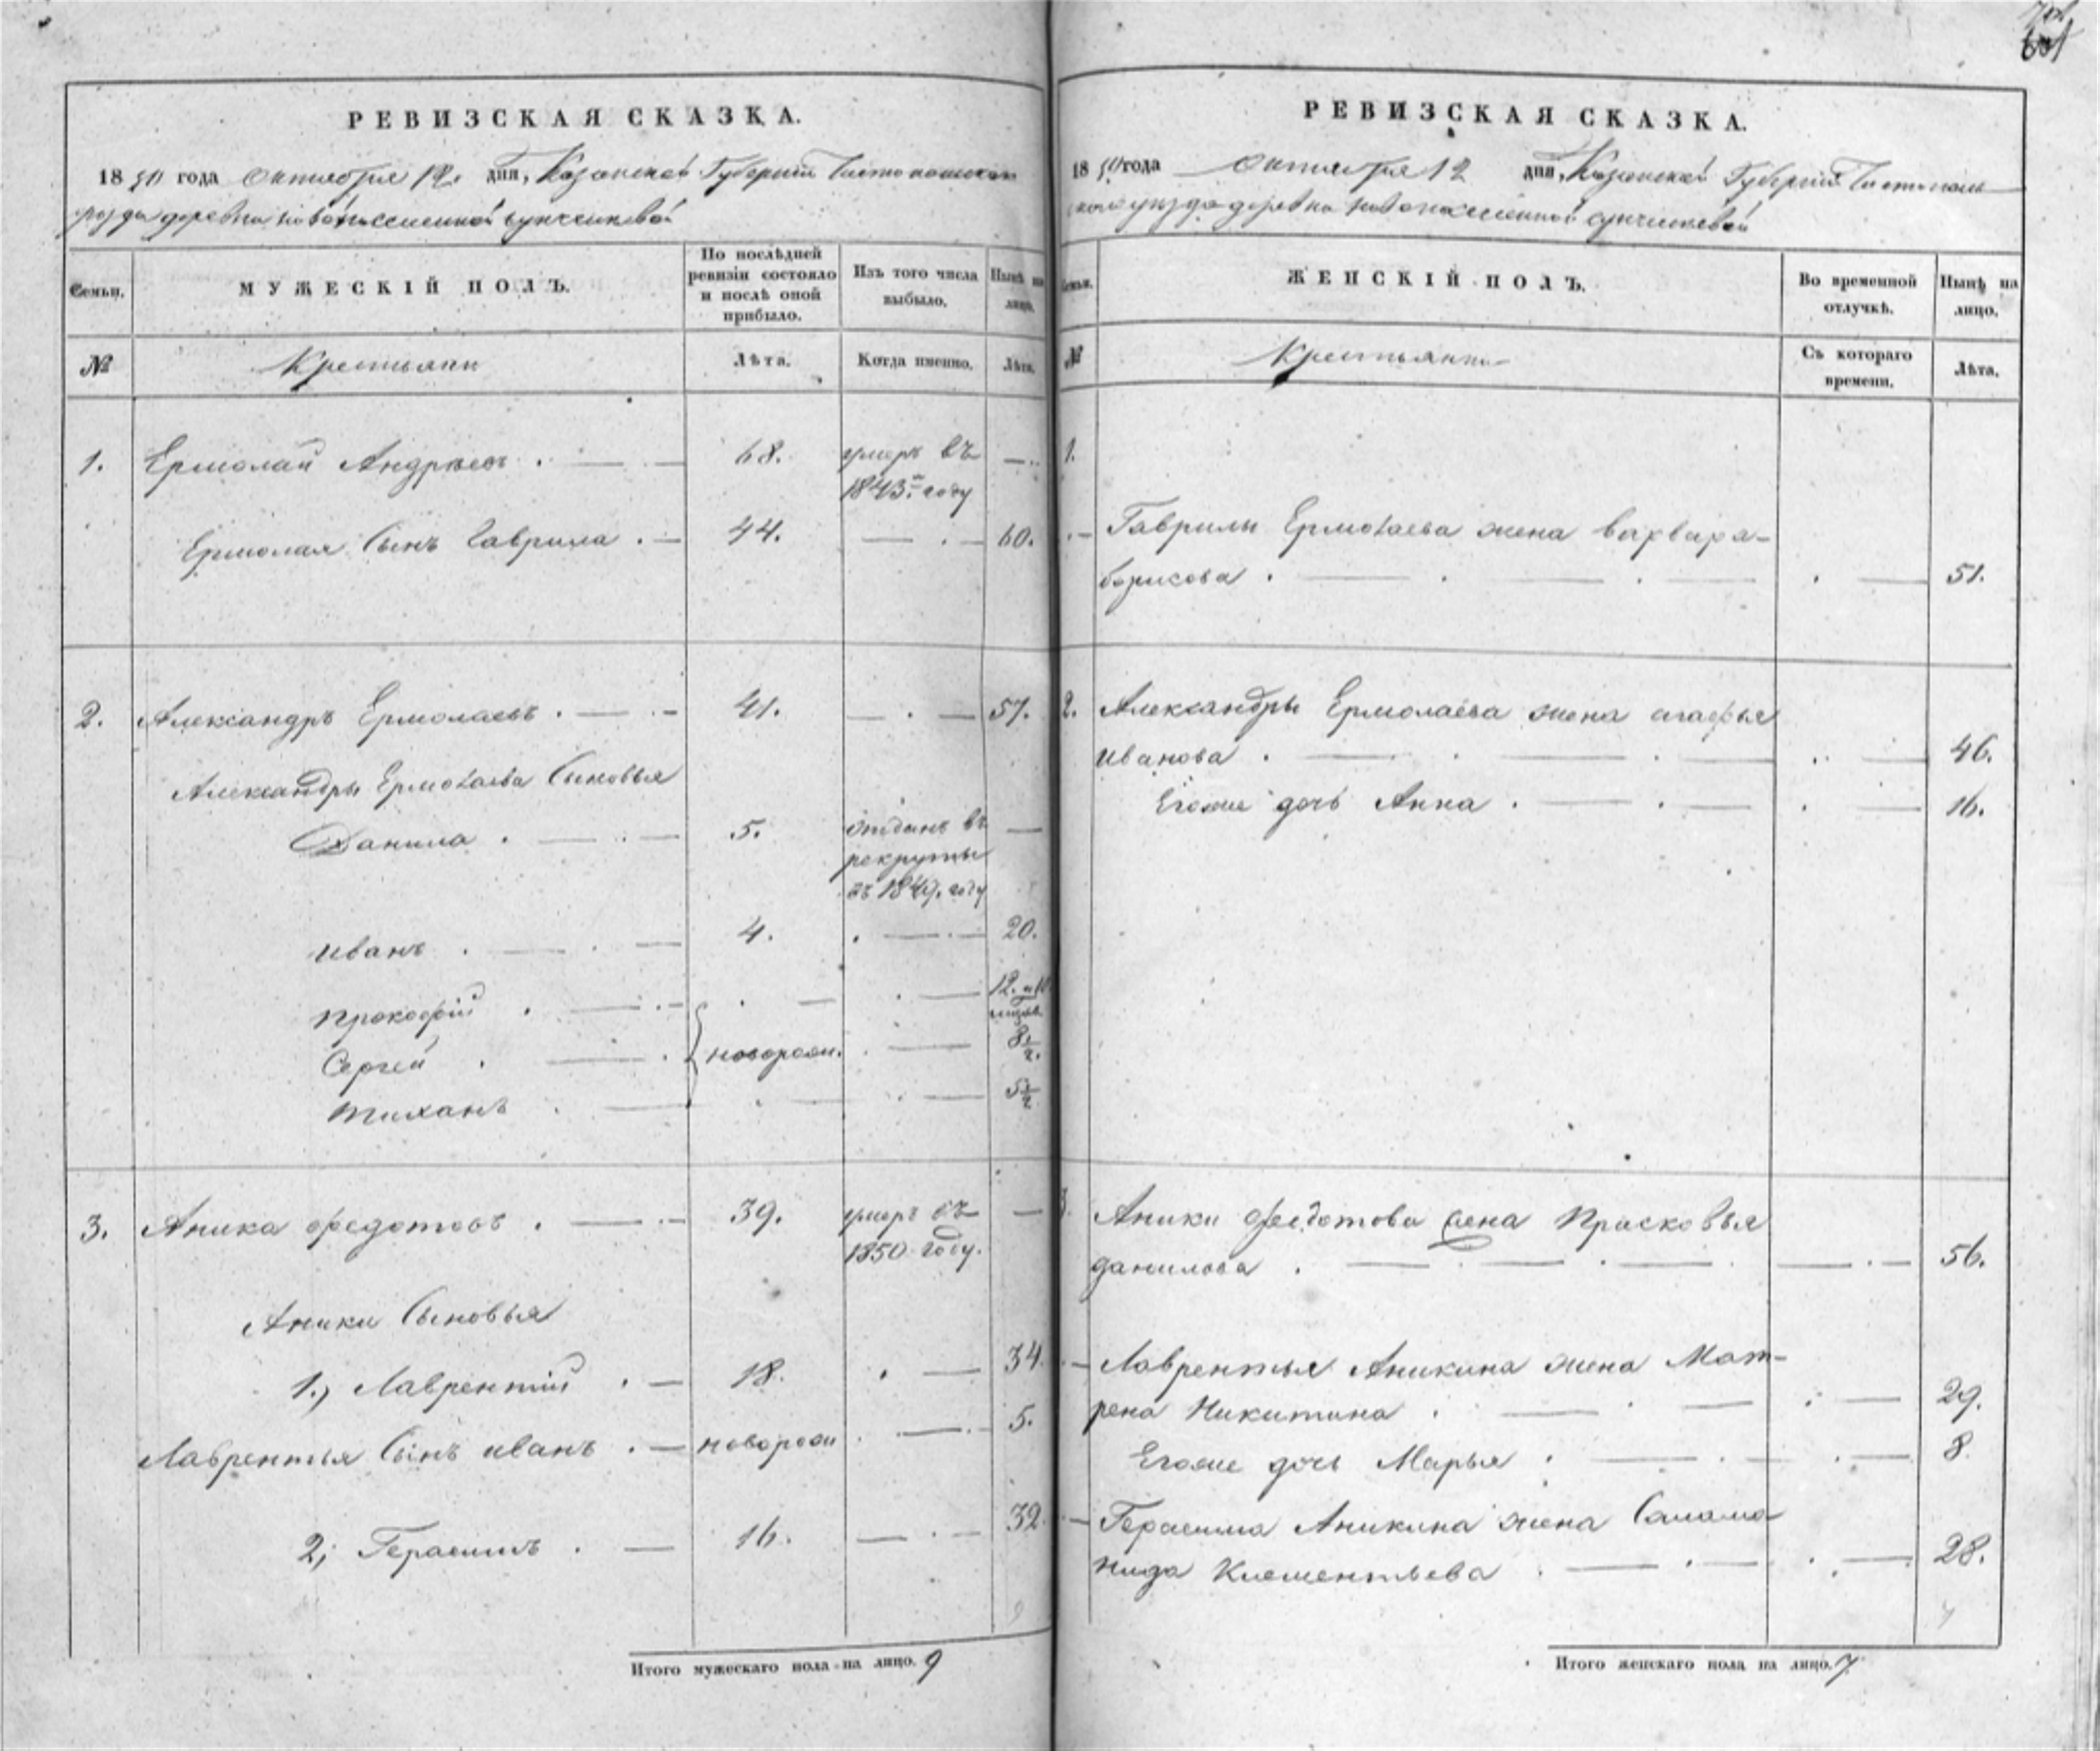 РЕВИЗСКАЯ СКАЗКА.
1850 года Октября 12. дня, Казанской Губернии Чистопольскаго
уезда деревни новопоселенной
Семьи.
МУЖЕСКІЙ ПОЛЪ.
По послѣдней ревизіи состояло и послѣ оной прибыло.
Изъ того числа выбыло.
Нынѣ на лицо.
№
Крестьяни
Лѣта.
Когда именно.
Лѣта.
1. Ермолай Андреевъ . 68. умеръ въ —
1843мъ году
Ермолая Сынъ Гаврила . 44. — 60.
2. Александръ Ермолаевъ . 41. — 57.
Александры Ермолаева Сыновья
Данила . 5. отданъ въ —
рекруты
въ 1849. году
иванъ . 4. — 20.
прокофій . — 12. и 10
Сергей . новорож. — 8½.
тиханъ . — 5½
3. Аника федотовъ . 39. умеръ въ —
1850 году.
Аники Сыновья
1., Лаврентій . 18. — 34.
Лаврентья Сынъ иванъ . новорож — 5.
2, Герасимъ . 16. — 32.
9
Итого мужескаго пола на лицо. 9
РЕВИЗСКАЯ СКАЗКА.
1850 года Октября 12 дня, Казанской Губернии Чистополь
скаго уезда деревни новопоселенной
Семьи.
ЖЕНСКІЙ ПОЛЪ.
Во временной отлучкѣ.
Нынѣ на лицо.
№
Крестьянки
Съ котораго времени.
Лѣта.
1.
Гаврилы Ермолаева жена варвара
борисова . — 51.
2. Александры Ермолаева жена агафья
иванова . — 46.
Егоже дочь Анна . — 16.
3. Аники федотова жена Прасковья
данилова . — 56.
Лаврентья Аникина жена Мат-
рена Никитина . — 29.
Егоже дочь Марья . — 8.
Герасима Аникина жена Салама
нида Клементьева . — 28.
7
Итого женскаго пола на лицо. 7